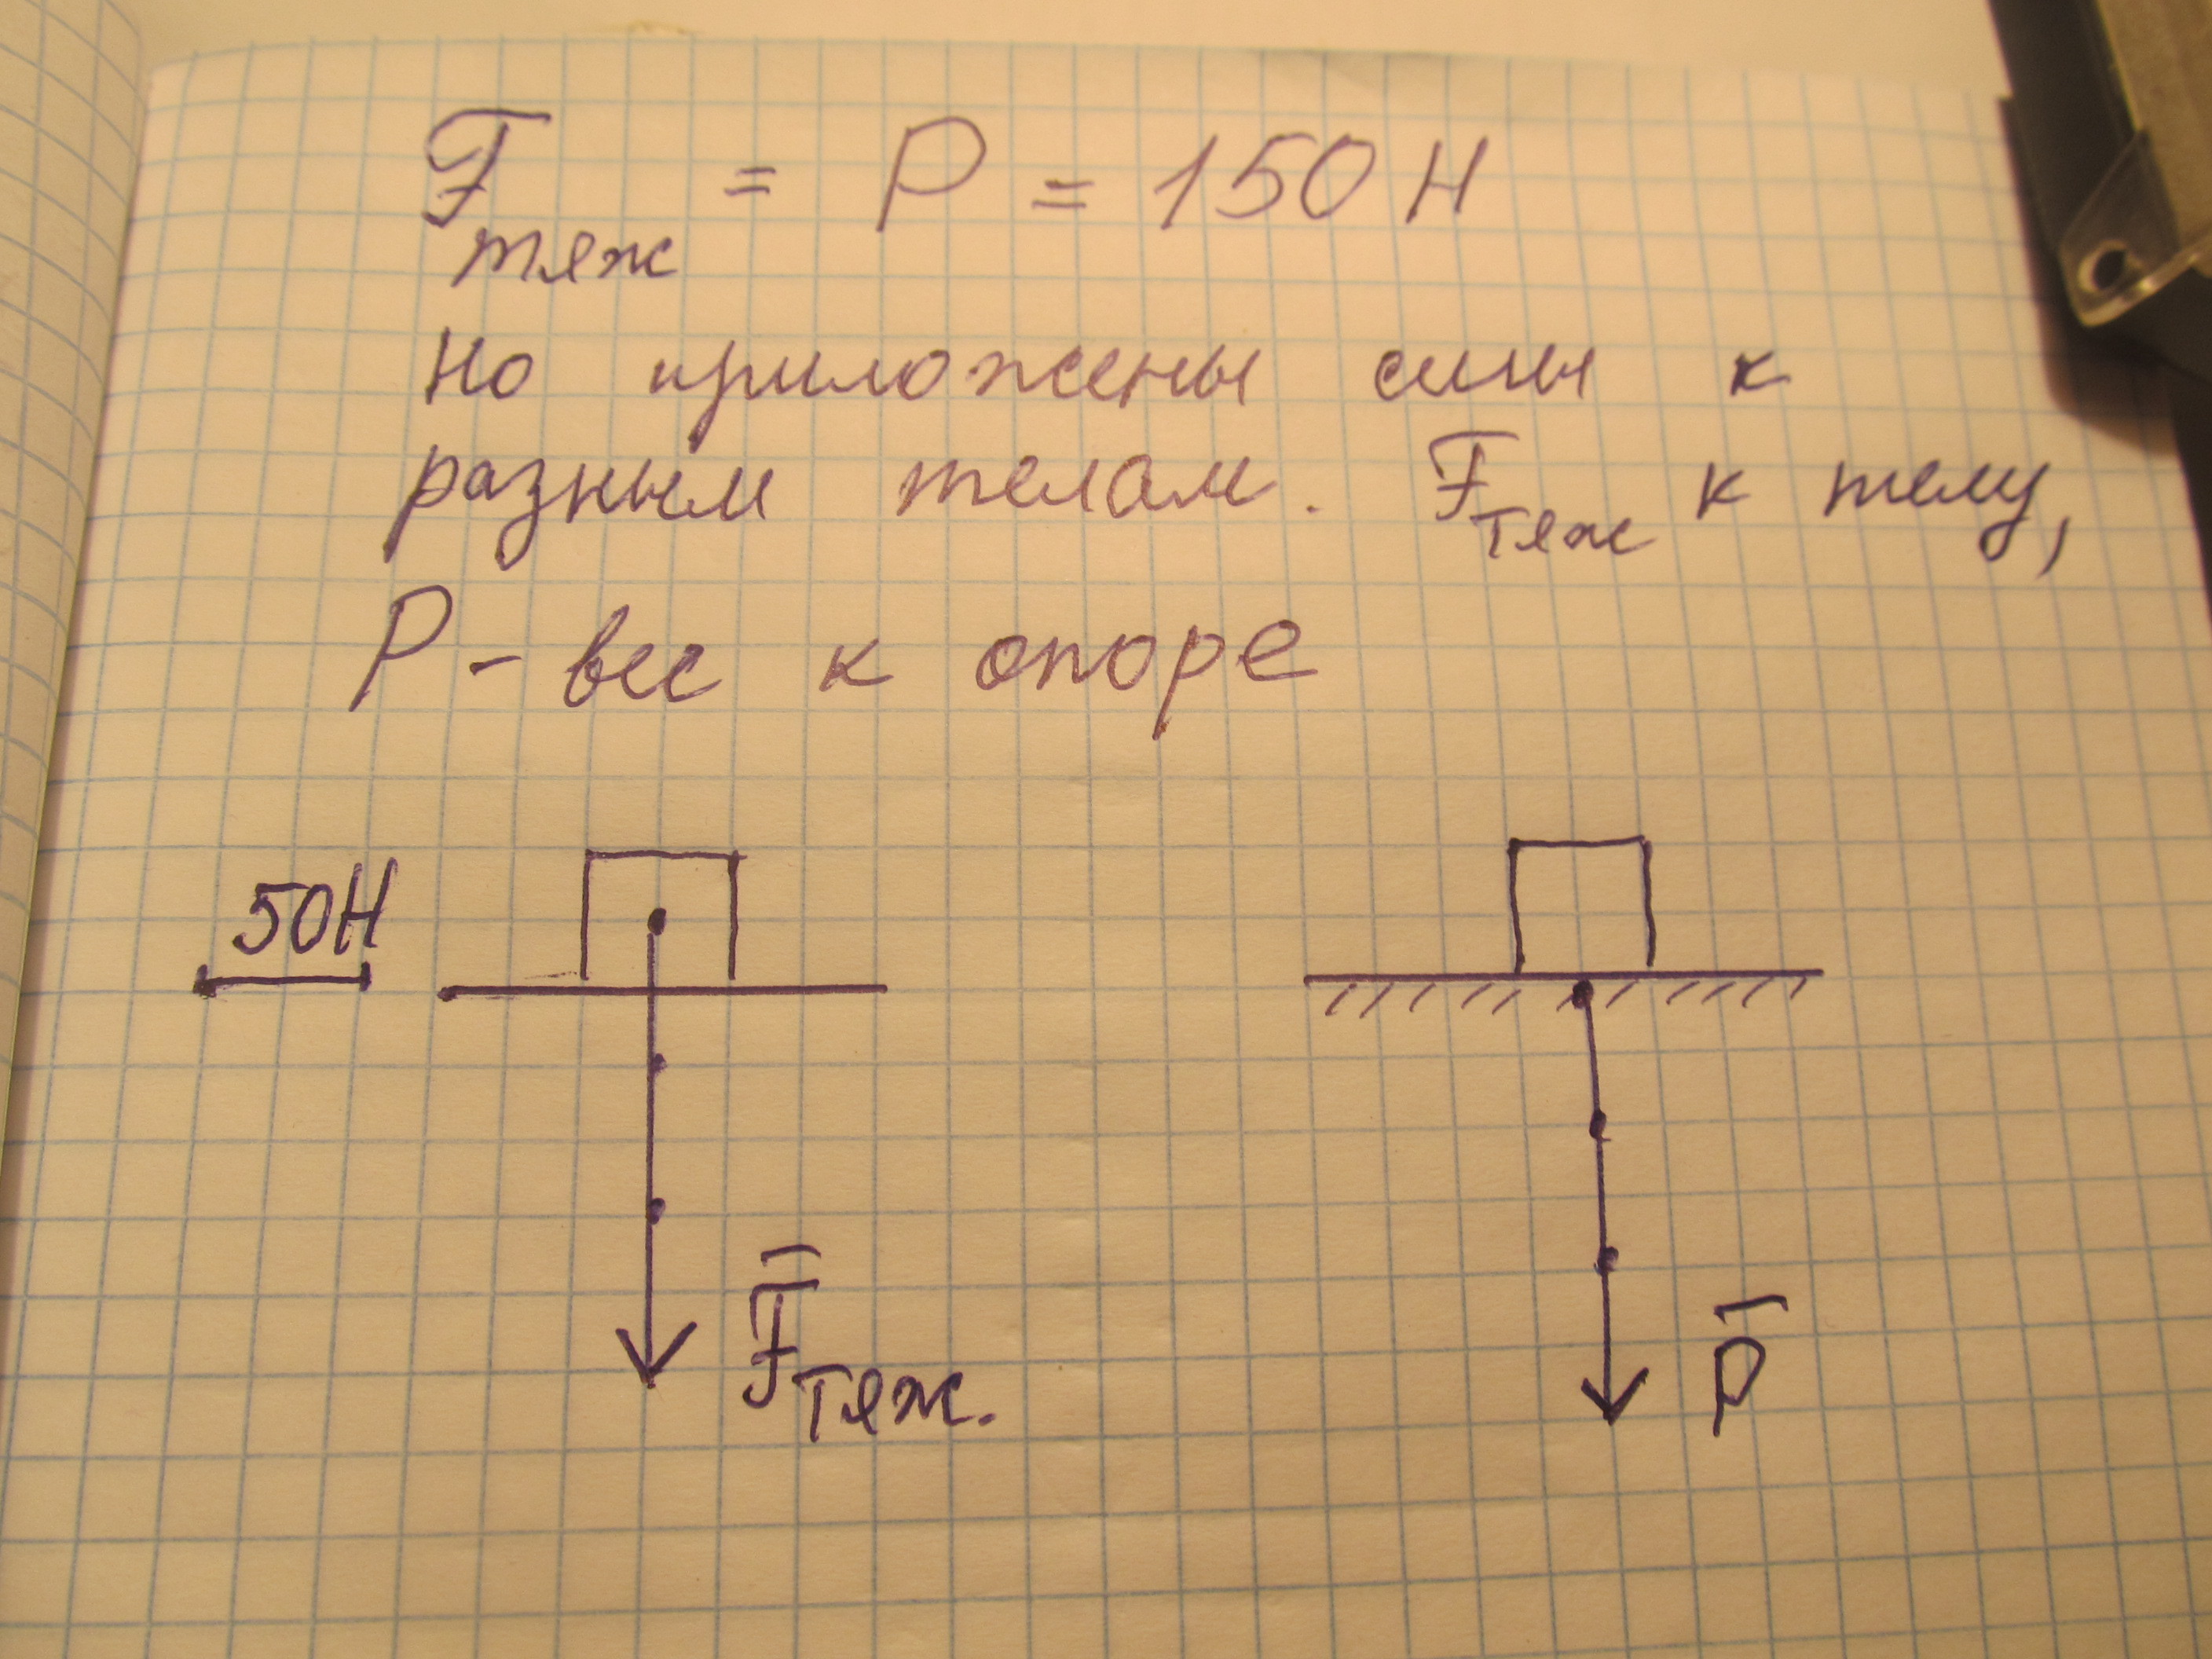 Fтяж = P = 150 Н
Но приложены силы к
разным телам. Fтяж к телу,
P - вес к опоре
50Н
F̅тяж.
P̅